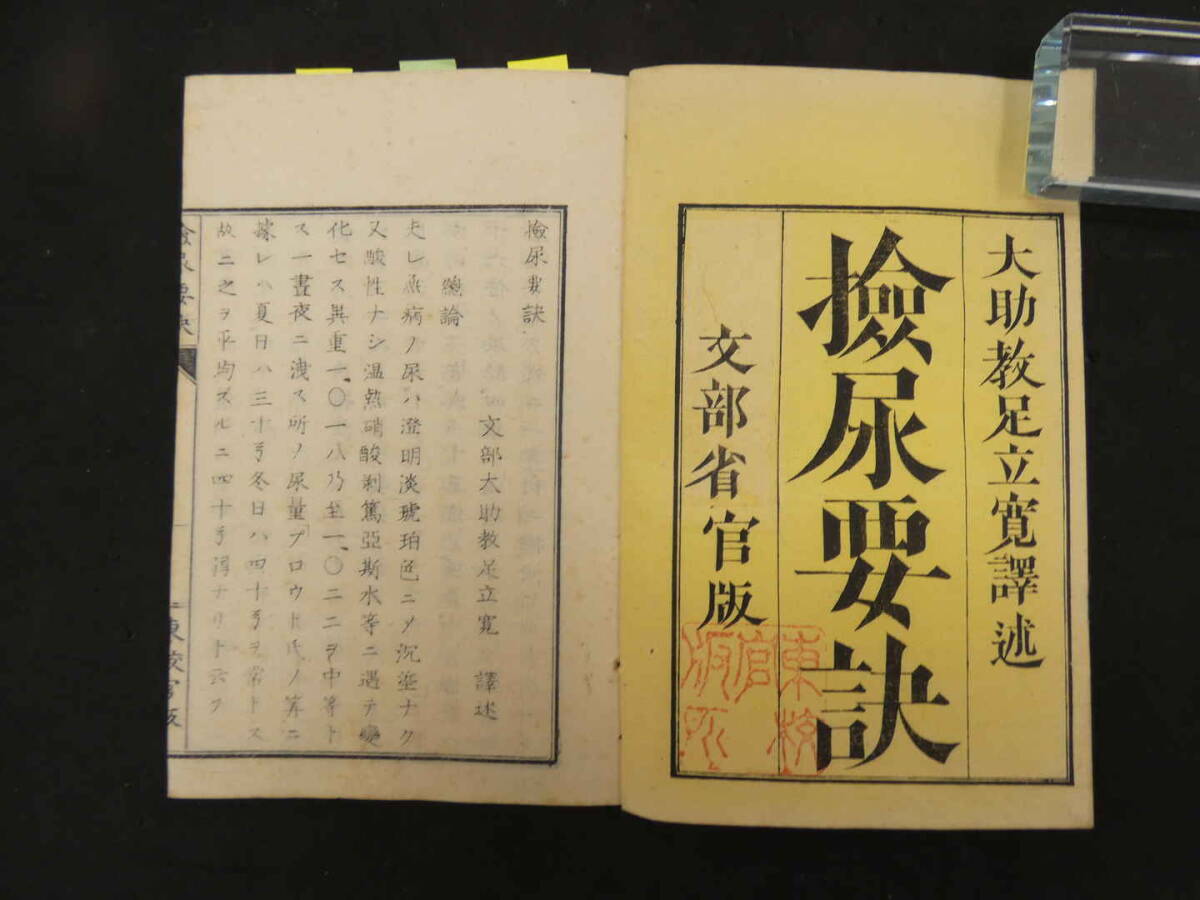 大助教足立寛譯述
撿尿要訣
文部省官版
東校
官
版
撿尿要訣
文部大助教足立寛 譯述
總論
夫レ無病ノ尿ハ澄明淡琥珀色ニ乄沉ナク
又酸性ナシ温熱硝酸剥篤亞斯水等ニ遇テ變
化セス異重一、〇一八乃至一、〇二二ヲ中等ト
ス一晝夜ニ洩ス所ノ尿量「プロウト氏ノ算ニ
據レハ夏日ハ三十℥冬日ハ四十℥ヲ常トス
故ニ之ヲ平均スルニ四十℥淂ナリト云フ
撿尿要訣
一
東校官版